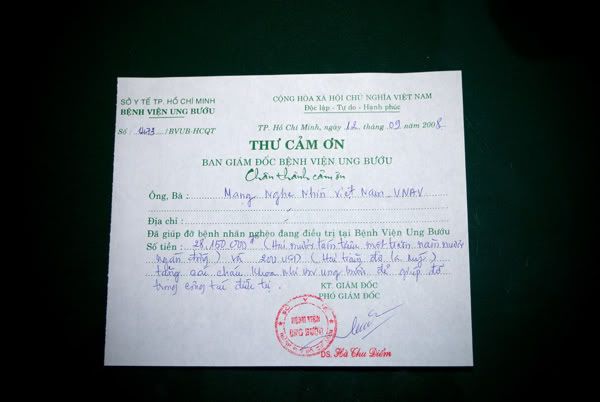 SỞ Y TẾ TP. HỒ CHÍ MINH
BỆNH VIỆN UNG BƯỚU
Số : /BVUB-HCQT
CỘNG HÒA XÃ HỘI CHỦ NGHĨA VIỆT NAM
Độc lập - Tự do - Hạnh phúc
TP. Hồ Chí Minh, ngày 12 tháng 09 năm 2008
THƯ CẢM ƠN
BAN GIÁM ĐỐC BỆNH VIỆN UNG BƯỚU
Chân thành cảm ơn
Ông, Bà : Mạng Nghe Nhìn Việt Nam - VNAV
Địa chỉ :
Đã giúp đỡ bệnh nhân nghèo đang điều trị tại Bệnh Viện Ung Bướu
Số tiền : 28.150.000đ (Hai mươi tám triệu một trăm năm mươi
ngàn đồng) và 200 USD (Hai trăm đô la Mỹ)
tặng các cháu khoa nhi ung bướu để giúp đỡ
trong công tác điều trị.
KT. GIÁM ĐỐC
PHÓ GIÁM ĐỐC
BỆNH VIỆN
UNG BƯỚU
DS. Hà Thu Điểm